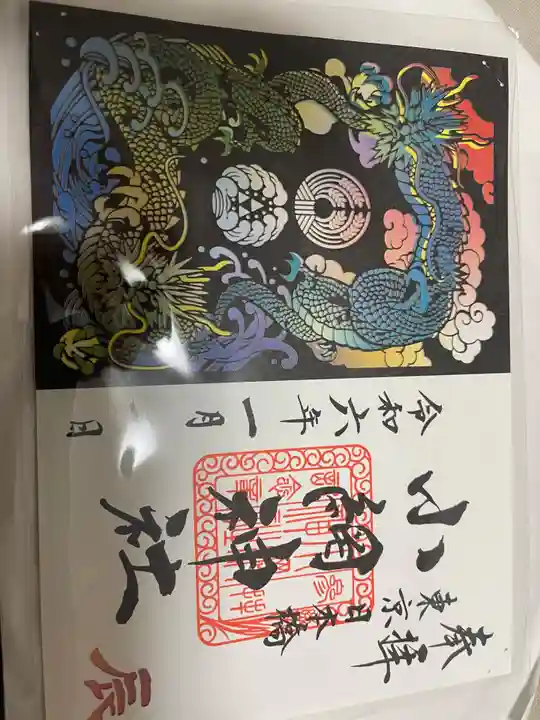 奉拝
東京
日本橋
小網神社
令和六年一月 日
辰